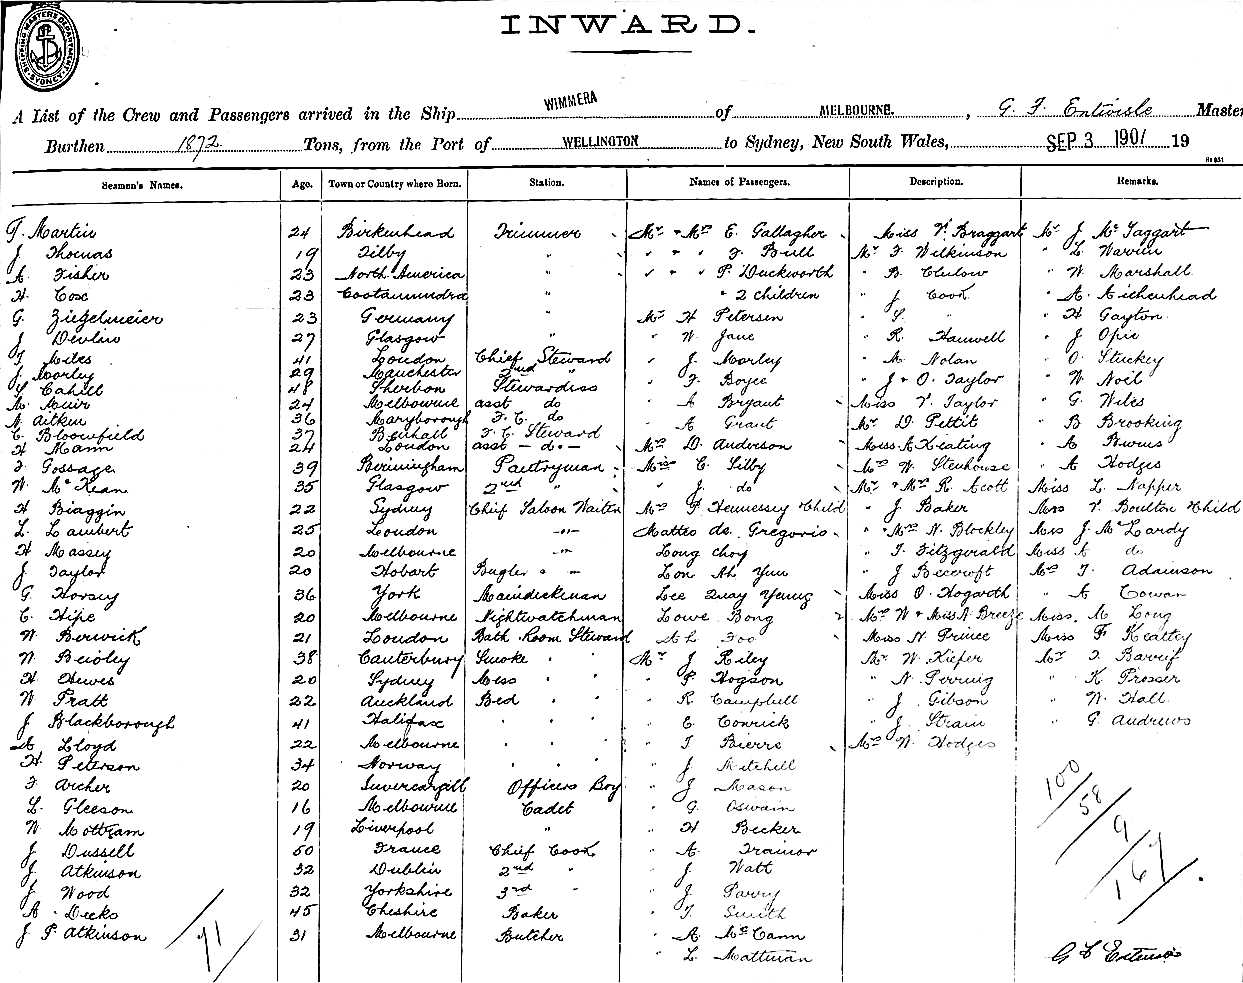 SHIPPING MASTERS DEPARTMENT SYDNEY
INWARD.
A List of the Crew and Passengers arrived in the Ship WIMMERA of MELBOURNE. , G. F. Entwisle Master
Burthen 1872 Tons, from the Port of WELLINGTON to Sydney, New South Wales, SEP 3 1907 19
Seamen's Names. Age. Town or Country where Born. Station. Names of Passengers. Description. Remarks.
F. Martin 24 Birkenhead Trimmer Mr & Mrs E Gallagher Miss V. Braggart Mr J McTaggart
J Thomas 19 Tilby " " " " F Bull Mr F Wilkinson " L Warrin
A. Fisher 23 North America " " " " P Duckworth " B Chulow " W Marshall
H. Cox 23 Cootamundra " " 2 children " J Cook " A. Aichenhead
G. Ziegelmeier 23 Germany " Mr H Petersen " S. " " H Gayton
J Devlin 27 Glasgow " " W Jane " R. Hanwell " J Opie
J Miles 41 London Chief Steward " J Morley " A. Nolan " O. Stuckey
J. Morley 29 Manchester 2nd " " F Boyce " J & O. Taylor " W Noil
Cahill 48 Sherbon Stewardess " A Bryant Miss V. Taylor " G. Wiles
A. Muir 24 Melbourne asst do " A Grant Mr D. Pettit " B Brooking
A. Aitken 36 Maryborough F. C. do Mrs D. Anderson Miss A Keating " A
C. Bloomfield 37 Benhall F. C. Steward Miss C. Silby Mrs W. Stenhouse " A Hodges
H Mann 24 London asst - do - " J. do Mr & Mrs R Scott Miss L. Napper
F. Gossage 39 Birmingham Pantryman Mrs P Hennessy & Child " J Baker Mrs V. Boulton & Child
W. McKean 35 Glasgow 2nd " Matteo de Gregorio " & Mrs N. Blockley Miss J McLardy
H Biaggin 22 Sydney Chief Saloon Waiter Long Choy " T. Fitzgerald Miss A do
L. Lambert 25 London -"- Lon Ah Yun " J Beecroft Mrs T. Adamson
H Massey 20 Melbourne -"- Lee Quay Yenug Miss O. Hogarth " A Cowan
J Taylor 20 Hobart Bugler " - Lowe Bong Mrs W & Miss N. Breeze Miss. M Long
G. Horsey 36 York Maindeckman Ah Foo Miss N. Prince Miss F Kealtey
C. Hipe 20 Melbourne Nightwatchman Mr J Riley Mr W. Kiefer Mr
W. Berwick 21 London Bath Room Steward " P Hogson " N. Perring " K Prosser
W Bewley 38 Canterbury Smoke " " " R Campbell " J Gibson " W Hall
H Hewes 20 Sydney Mess " " " C Conrick " J. Strain " G. Andrews
W Pratt 22 Auckland Bed " " " T Bierre Mrs W. Hodges
J Blackborough 41 Halifax " " " " J Mitchell
A. Lloyd 22 Melbourne " " " " J Mason
H Peterson 34 Norway " " " " G. Oswain
F Archer 20 Invercargill Officers Boy " H Becker
L. Gleeson 16 Melbourne Cadet " A. Trainor
W Mottram 19 Liverpool " " J Watt
J Dussell 50 France Chief Cook " J. Parry
J. Atkinson 32 Dublin 2nd " " T. Smith
J Wood 32 Yorkshire 3rd " " A McCann
A. Decks 45 Cheshire Baker " L. Mattman
J P Atkinson 31 Melbourne Butcher
71
100
58
9
167
G F Entwisle